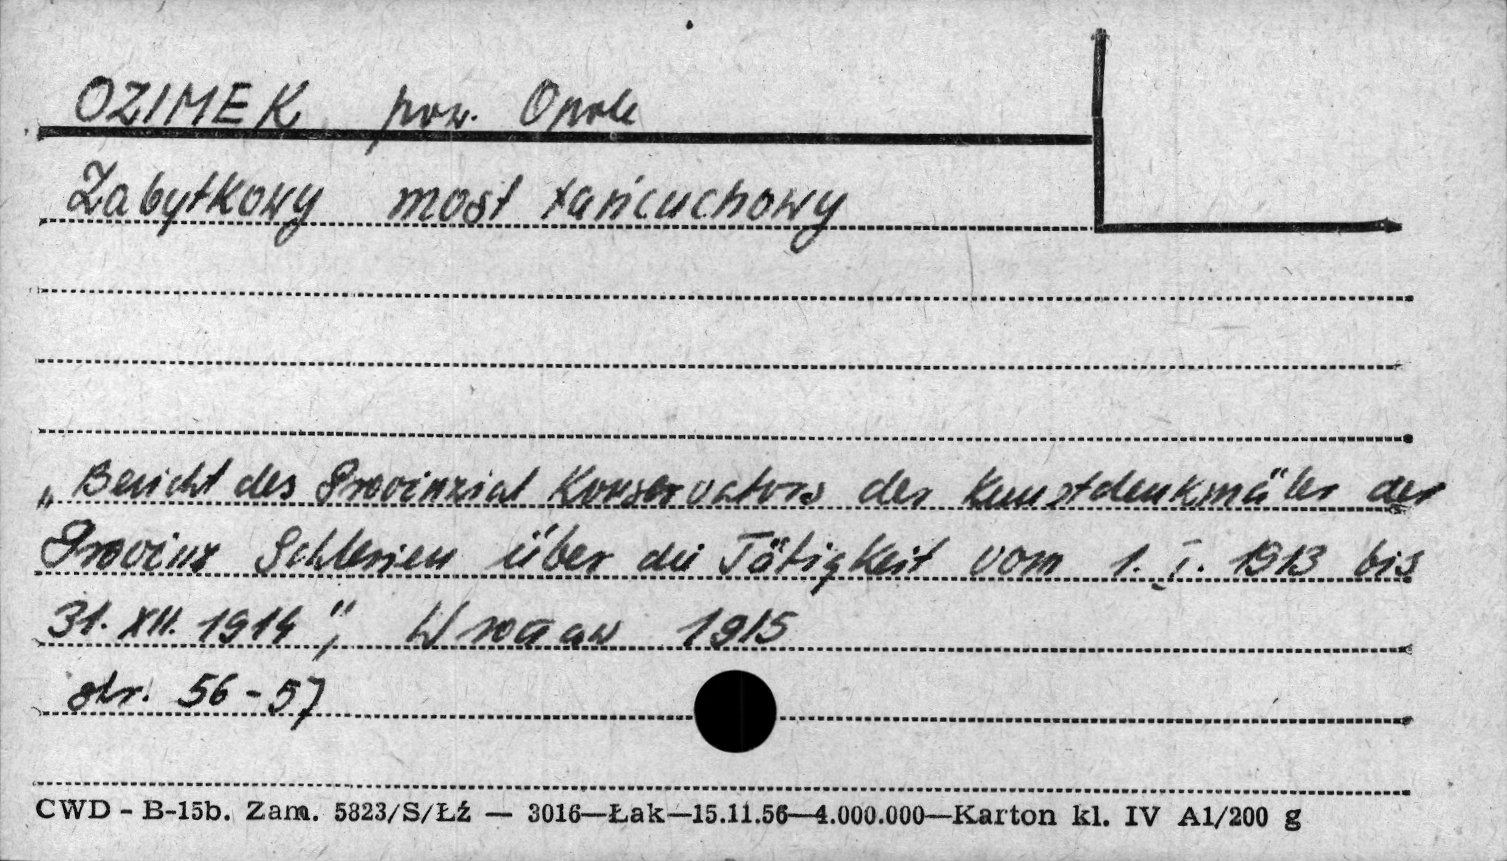 OZIMEK pow. Opole
Zabytkowy most łańcuchowy
„Bericht des Provinzial Konservators der Kunstdenkmäler der
Provinz Schlesien über die Tätigkeit vom 1. I. 1913 bis
31. XII. 1914", Wrocław 1915
str. 56-57
CWD - B-15b. Zam. 5823/S/Łź — 3016—Łak—15.11.56—4.000.000—Karton kl. IV A1/200 g